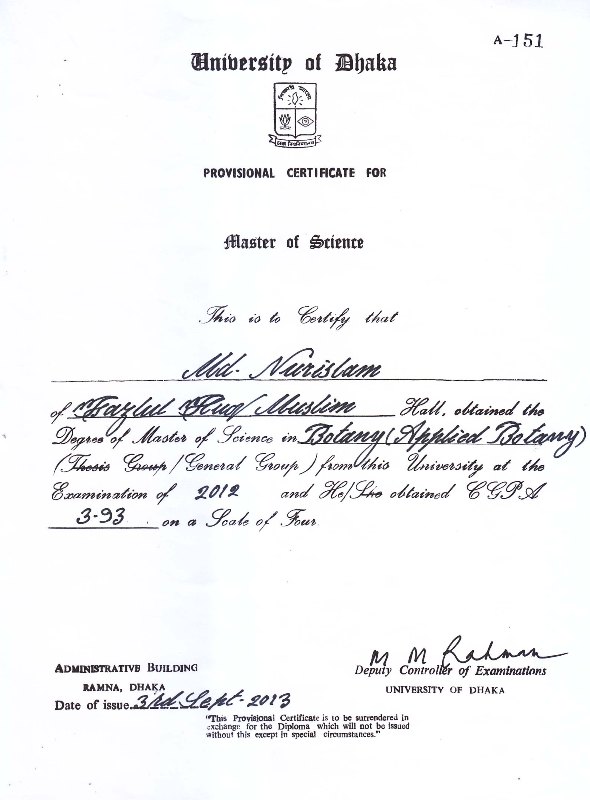 A-151
University of Dhaka
PROVISIONAL CERTIFICATE FOR
Master of Science
This is to Certify that
Md. Nurislam
of Fazlul Huq Muslim Hall, obtained the
Degree of Master of Science in Botany (Applied Botany)
(Thesis Group/General Group) from this University at the
Examination of 2012 and He/She obtained CGPA
3.93 on a Scale of Four
M M Rahman
ADMINISTRATIVE BUILDING
Deputy Controller of Examinations
RAMNA, DHAKA
UNIVERSITY OF DHAKA
Date of issue 3rd Sept. 2013
"This Provisional Certificate is to be surrendered in
exchange for the Diploma which will not be issued
without this except in special circumstances."